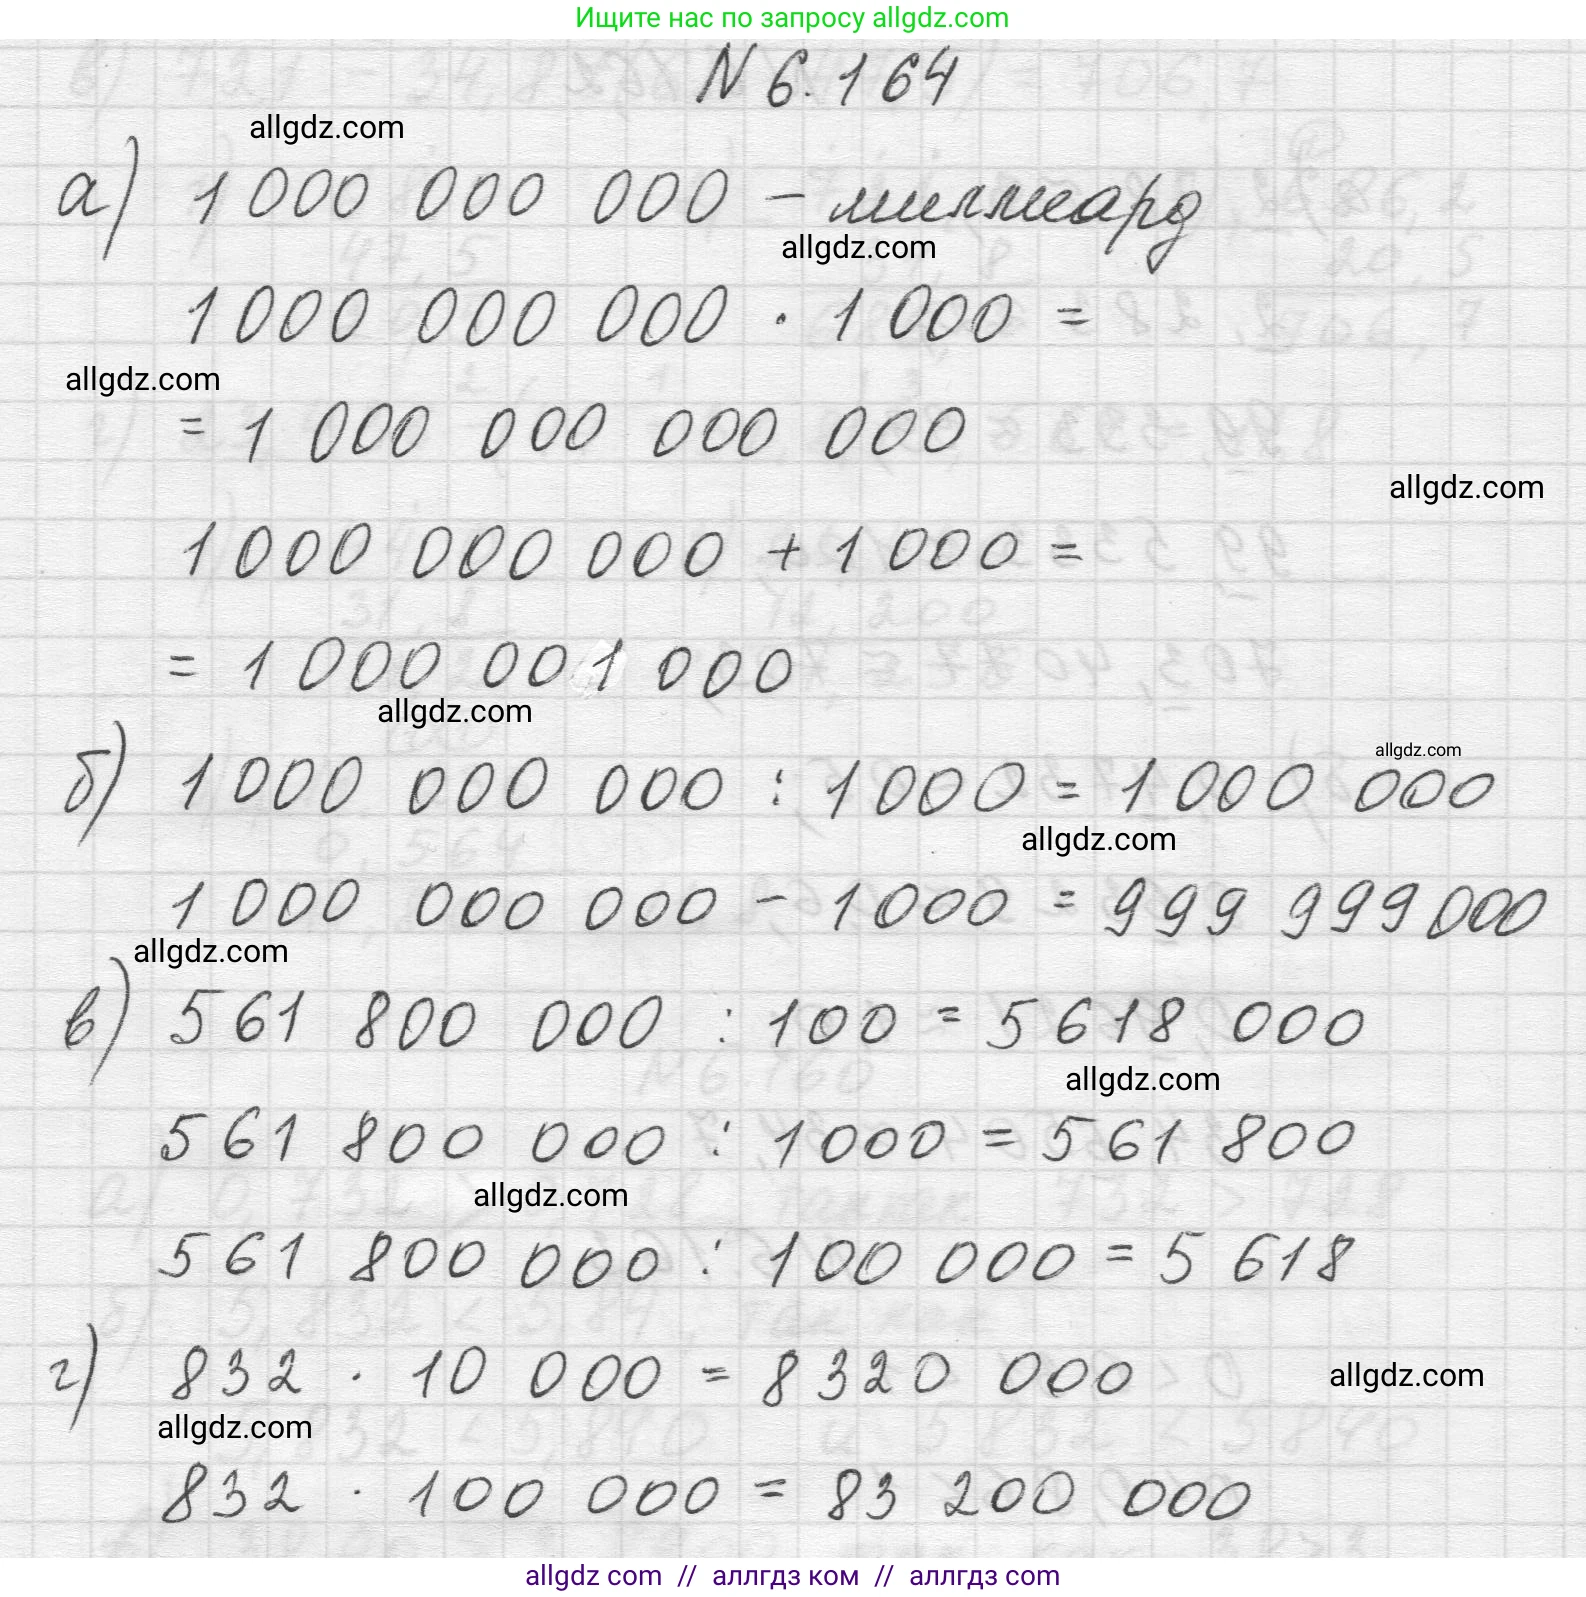 Ищите нас по запросу allgdz.com
N 6.164
allgdz.com
а) 1 000 000 000 – миллиард
allgdz.com
1 000 000 000 · 1 000 =
allgdz.com
= 1 000 000 000 000
allgdz.com
1 000 000 000 + 1 000 =
= 1 000 001 000
allgdz.com
allgdz.com
б) 1 000 000 000 : 1 000 = 1 000 000
allgdz.com
1 000 000 000 – 1 000 = 999 999 000
allgdz.com
в) 561 800 000 : 100 = 5 618 000
allgdz.com
561 800 000 : 1 000 = 561 800
allgdz.com
561 800 000 : 100 000 = 5 618
г) 832 · 10 000 = 8 320 000
allgdz.com
allgdz.com
832 · 100 000 = 83 200 000
allgdz com // аллгдз ком // аллгдз com